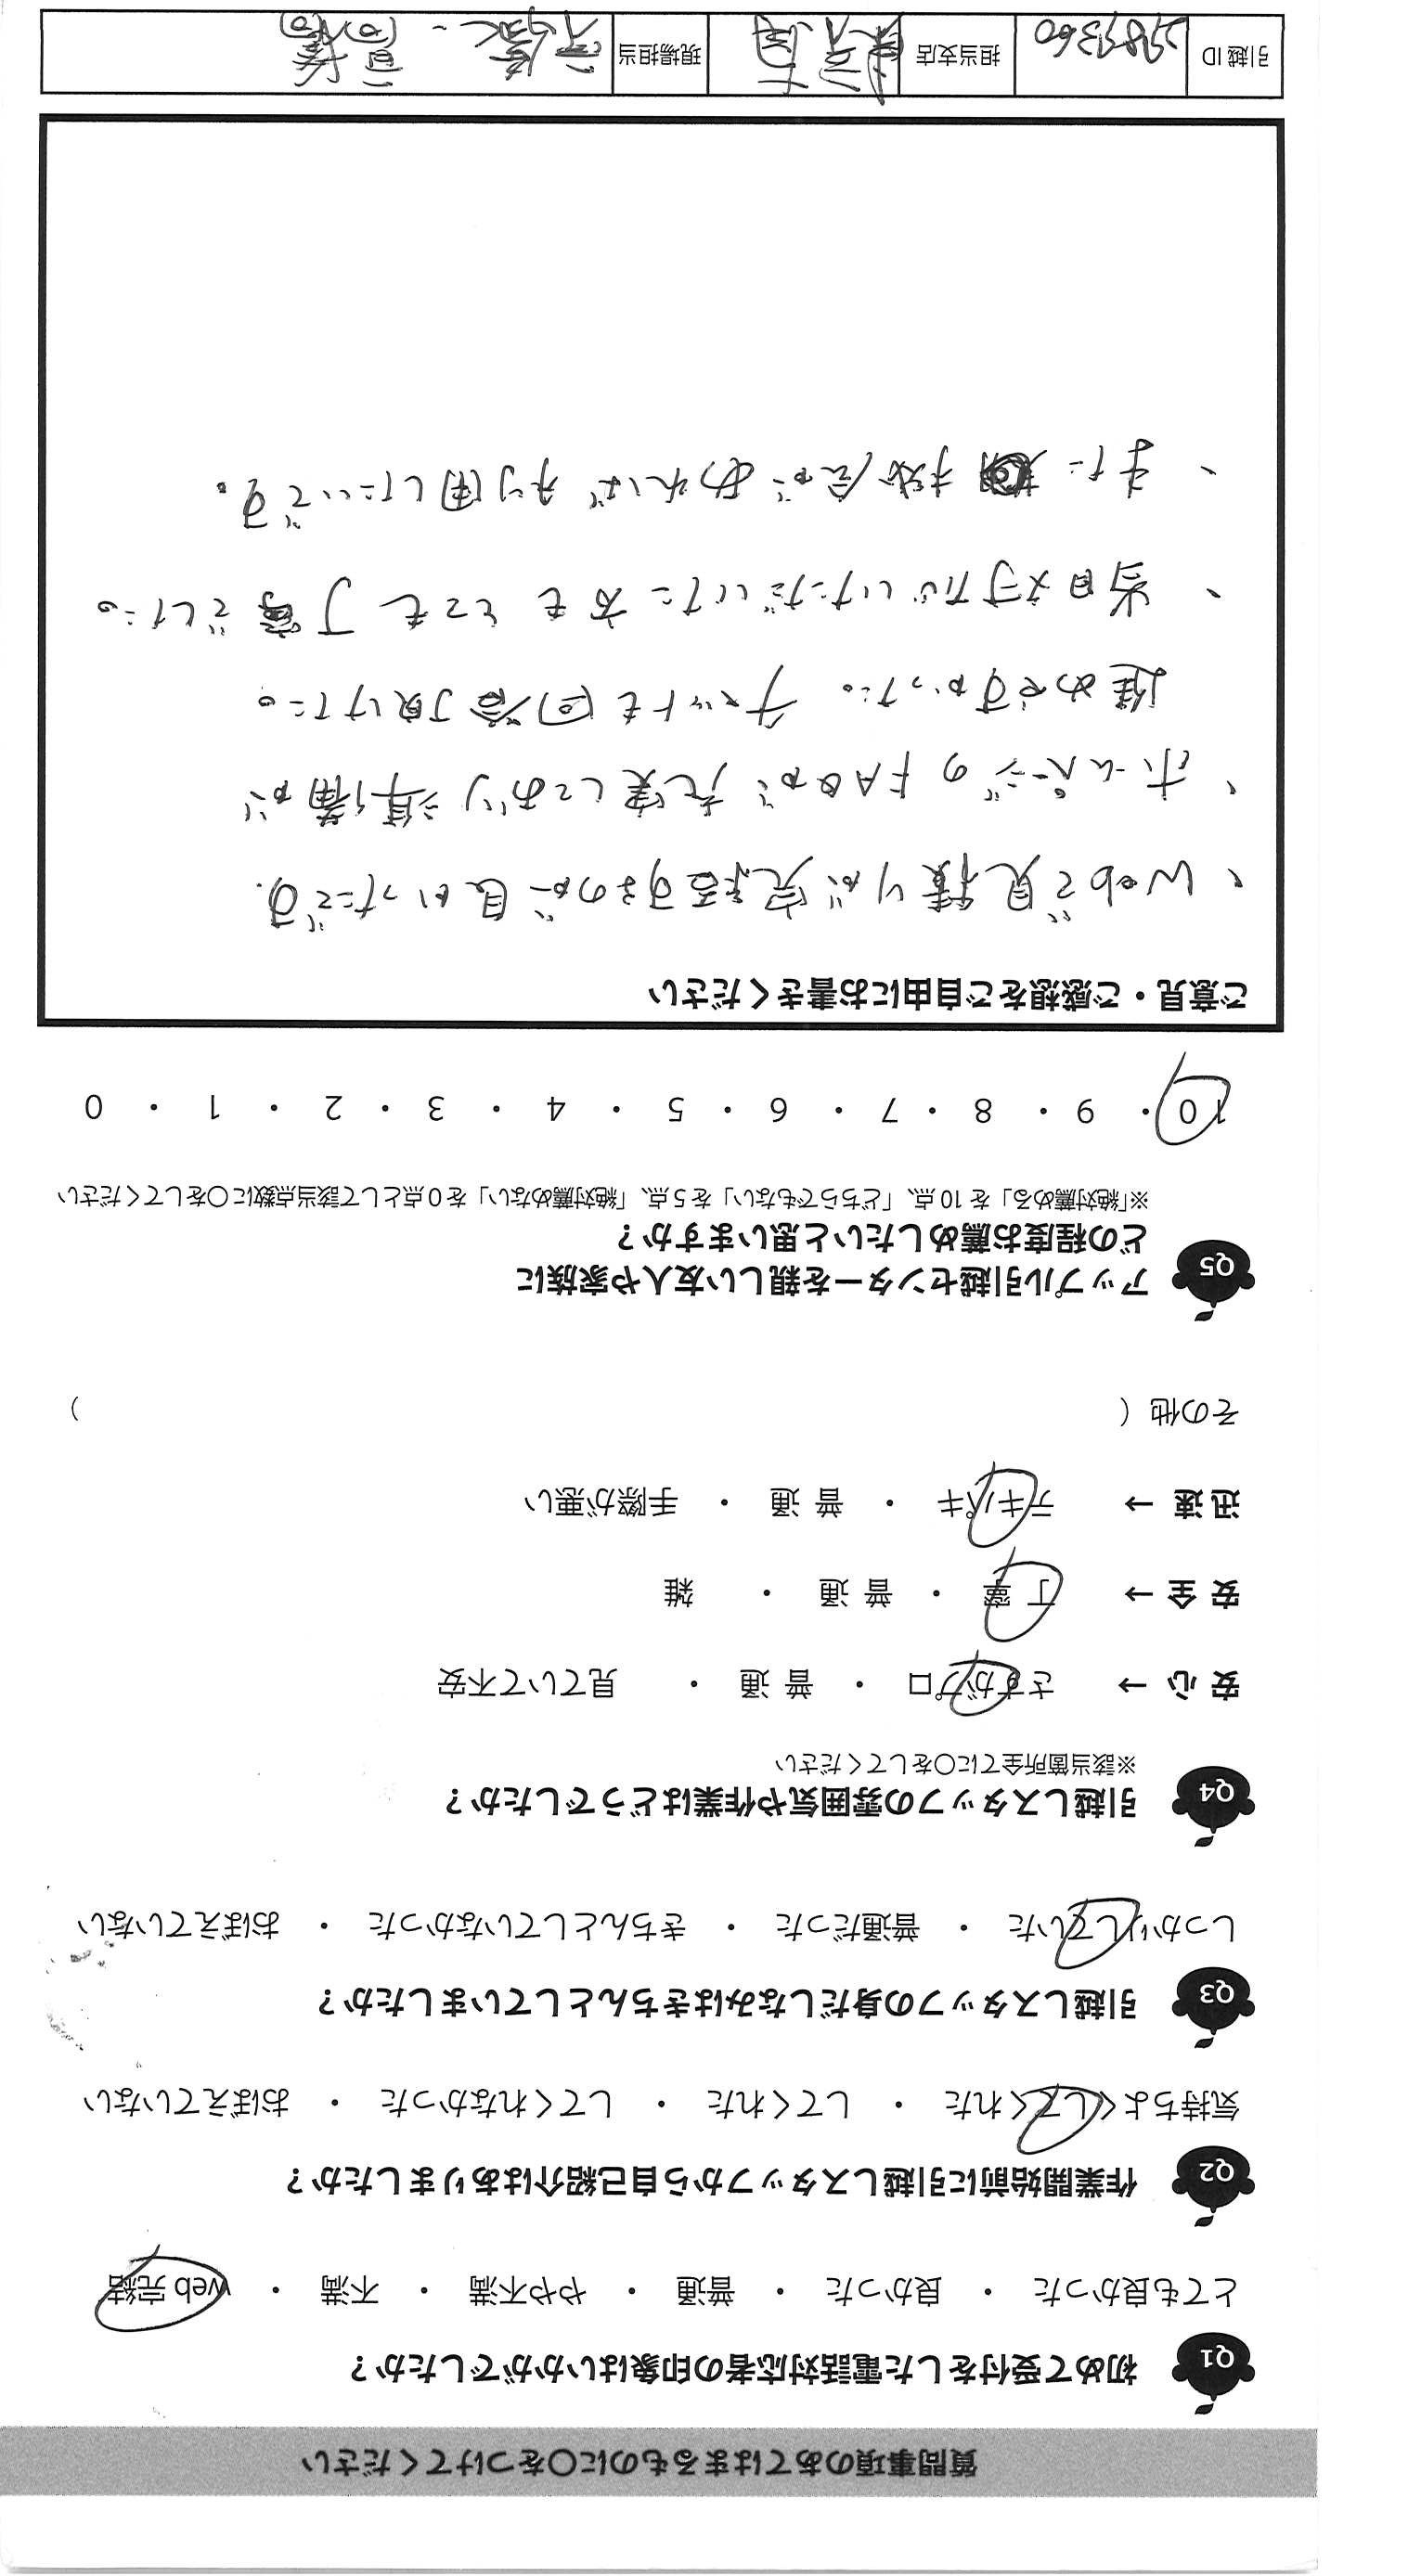 質問事項のあてはまるものに○をつけてください
Q1 初めて受付をした電話対応者の印象はいかがでしたか？
とても良かった ・ 良かった ・ 普通 ・ やや不満 ・ 不満 ・ web 完結
Q2 作業開始前に引越しスタッフから自己紹介はありましたか？
気持ちよくしてくれた ・ してくれた ・ してくれなかった ・ おぼえていない
Q3 引越しスタッフの身だしなみはきちんとしていましたか？
しっかりしていた ・ 普通だった ・ きちんとしていなかった ・ おぼえていない
Q4 引越しスタッフの雰囲気や作業はどうでしたか？
※該当箇所全てに○をしてください
安 心 → さすがプロ ・ 普 通 ・ 見ていて不安
安 全 → 丁 寧 ・ 普 通 ・ 雑
迅 速 → テキパキ ・ 普 通 ・ 手際が悪い
その他（ ）
Q5 アップル引越センターを親しい友人や家族に
どの程度お薦めしたいと思いますか？
※「絶対薦める」を 10 点、「どちらでもない」を 5 点、「絶対薦めない」を 0 点として該当点数に○をしてください
10 ・ 9 ・ 8 ・ 7 ・ 6 ・ 5 ・ 4 ・ 3 ・ 2 ・ 1 ・ 0
ご意見・ご感想をご自由にお書きください
、Webで見積りが完結するのが良かったです。
、ホームページのFAQが充実しており準備が
進めやすかった。チャットも回答頂けた。
、当日対応いただいた方もとても丁寧でした。
、また機会があれば利用したいです。
引越 ID 2989360 担当支店 現場担当